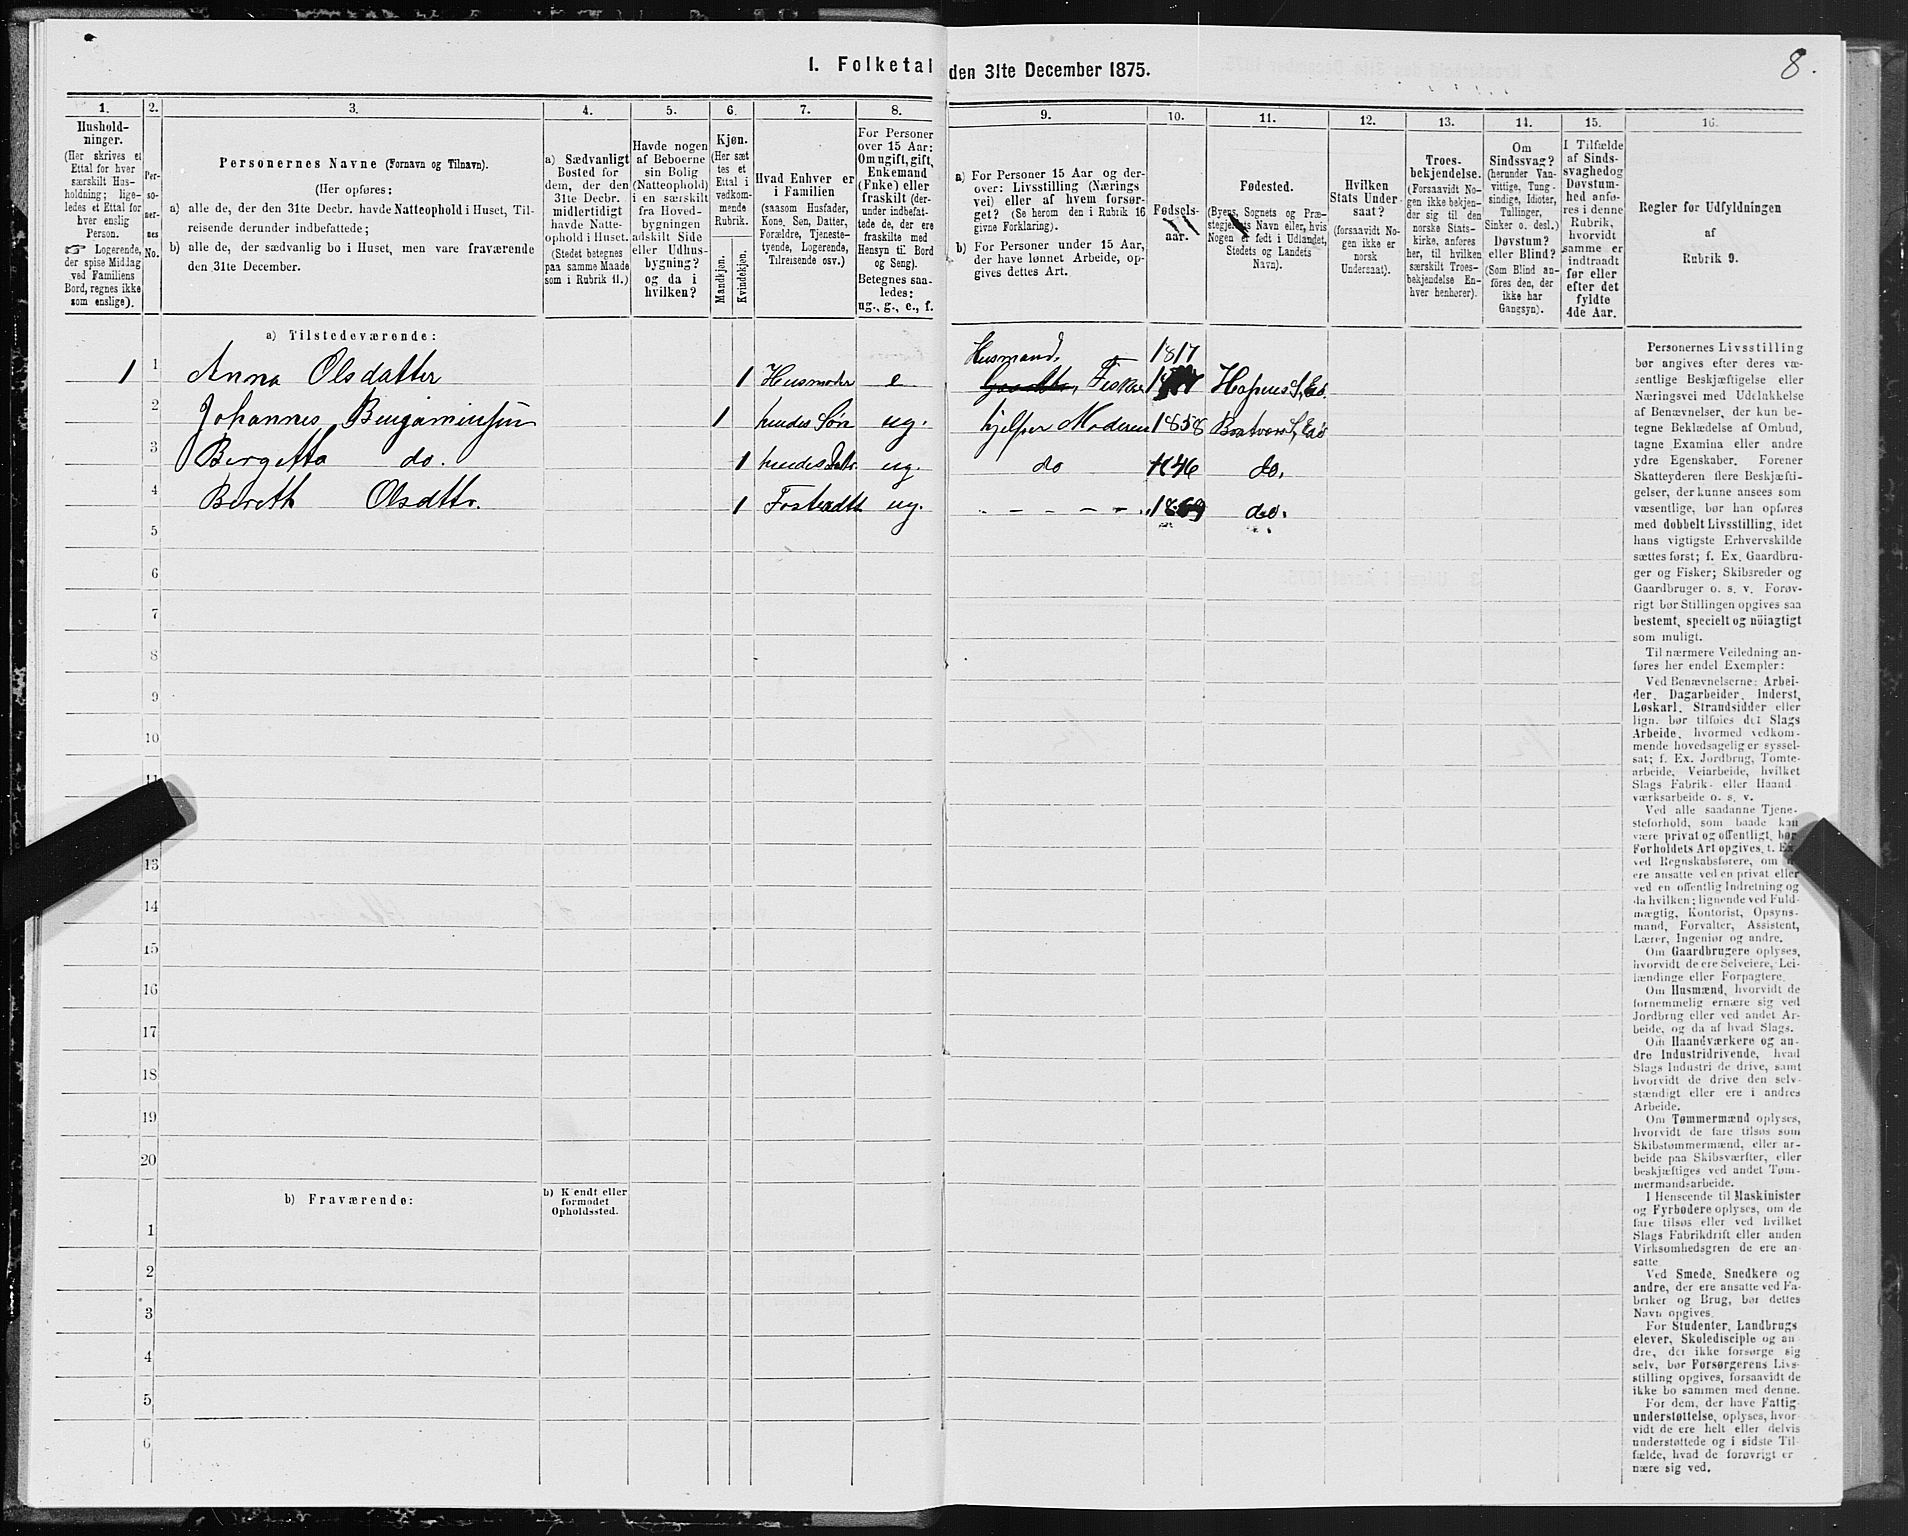 8.
1. Folketal den 31te December 1875.
1.
2.
3.
4.
5.
6.
7.
8.
9.
10.
11.
12.
13.
14.
15.
16.
Hushold-
ninger.
(Her skrives et
Ettal for hver
særskilt Hus-
holdning; lige-
ledes et Ettal for
hver enslig
Person.
☞ Logerende,
der spise Middag
ved Familiens
Bord, regnes ikke
som enslige).
Per-
so-
ner-
nes
No.
Personernes Navne (Fornavn og Tilnavn).
(Her opføres:
a) alle de, der den 31te Decbr. havde Natteophold i Huset, Til-
reisende derunder indbefattede;
b) alle de, der sædvanlig bo i Huset, men vare fraværende
den 31te December.
a) Sædvanligt
Bosted for
dem, der den
31te Decbr.
midlertidigt
havde Natte-
ophold i Huset.
(Stedet betegnes
paa samme Maade
som i Rubrik 11.)
Havde nogen
af Beboerne
sin Bolig
(Natteophold)
i en særskilt
fra Hoved-
bygningen
adskilt Side
eller Udhus-
bygning?
og da i
hvilken?
Kjøn.
(Her sæt
tes et
Ettal i
vedkom-
mende
Rubrik.
Mandkjøn.
Kvindekjøn.
Hvad Enhver er
i Familien
(saasom Husfader,
Kone, Søn, Datter,
Forældre, Tjeneste-
tyende, Logerende,
Tilreisende osv.)
For Personer
over 15 Aar:
Om ugift, gift,
Enkemand
(Enke) eller
fraskilt (der-
under indbefat-
tede de, der ere
fraskilte med
Hensyn til Bord
og Seng).
Betegnes saa-
ledes:
ug., g., e., f.
a) For Personer 15 Aar og der-
over: Livsstilling (Nærings
vei) eller af hvem forsør-
get? (Se herom den i Rubrik 16
givne Forklaring).
b) For Personer under 15 Aar,
der have lønnet Arbeide, op-
gives dettes Art.
Fødsels-
aar.
Fødested.
(Byens, Sognets og Præ-
stegjeldets Navn eller, hvis
Nogen er født i Udlandet,
Stedets og Landets
Navn).
Hvilken
Stats Under
saat?
(forsaavidt No-
gen ikke er
norsk
Undersaat).
Troes-
bekjendelse.
(Forsaavidt No-
gen ikke bekjen-
der sig til den
norske Stats-
kirke, anføres
her, til hvilken
særskilt Troes-
bekjendelse En-
hver henhører).
Om
Sindssvag?
(herunder Van-
vittige, Tung-
sindige, Idioter,
Tullinger,
Sinker o. desl.)
Døvstum?
eller Blind?
(Som Blind an-
føres den, der
ikke har
Gangsyn).
I Tilfælde
af Sinds-
svaghed og
Døvstum-
hed anfø-
res i denne
Rubrik,
hvorvidt
samme er
indtraadt
før eller
efter det
fyldte
4de Aar.
Regler for Udfyldningen
af
Rubrik 9.
a) Tilstedeværende:
Husmand, 1817
1 1 Anna Olsdatter 1 Husmoder e Fisker
2 Johannes Benjaminsen 1 hendes Søn ug. hjelper Moderen 1858
3 Bergetta do. 1 hendes Dattr ug. do 1846 do.
4 Bereth Olsdttr. 1 Fosterdttr ug. - - - - - 1869 do.
5
6
7
8
9
10
11
13
14
15
16
17
18
19
20
b) Fraværende:
b) Kjendt eller
formodet
Opholdssted.
1
2
3
4
5
6
Personernes Livsstilling
bør angives efter deres væ-
sentlige Beskjæftigelse eller
Næringsvei med Udelukkelse
af Benævnelser, der kun be-
tegne Beklædelse af Ombud,
tagne Examina eller andre
ydre Egenskaber. Forener
Skatteyderen flere Beskjæfti-
gelser, der kunne ansees som
væsentlige, bør han opføres
med dobbelt Livsstilling, idet
hans vigtigste Erhvervskilde
sættes først; f. Ex. Gaardbru-
ger og Fisker; Skibsreder og
Gaardbruger o. s. v. Forøv-
rigt bør Stillingen opgives saa
bestemt, specielt og nöiagtigt
som muligt.
Til nærmere Veiledning an-
føres her endel Exempler:
Ved Benævnelserne: Arbei-
der, Dagarbeider, Inderst,
Løskarl, Strandsidder eller
lign. bør tilføies det Slags
Arbeide, hvormed vedkom-
mende hovedsagelig er syssel-
sat; f. Ex. Jordbrug, Tomte-
arbeide, Veiarbeide, hvilket
Slags Fabrik- eller Haand
værksarbeide o. s. v.
Ved alle saadanne Tjene-
steforhold, som baade kan
være privat og offentligt, bør
Forholdets Art opgives, f. Ex.
ved Regnskabsførere, om de
ere ansatte ved en privat eller
ved en offentlig Indretning og
da hvilken; lignende ved Fuld-
mægtig, Kontorist, Opsyns-
mand, Forvalter, Assistent,
Lærer, Ingeniør og andre.
Om Gaardbrugere oplyses,
hvorvidt de ere Selveiere, Lei-
lændinge eller Forpagtere.
Om Husmænd, hvorvidt de
fornemmelig ernære sig ved
Jordbrug eller ved andet Ar-
beide, og da af hvad Slags.
Om Haandværkere og an-
dre Industridrivende, hvad
Slags Industri de drive, samt
hvorvidt de drive den selv-
stændigt eller ere i andres
Arbeide.
Om Tømmermænd oplyses,
hvorvidt de fare tilsøs som
Skibstømmermænd, eller ar-
beide paa Skibsværfter, eller
beskjæftiges ved andet Tøm-
mermandsarbeide.
I Henseende til Maskinister
og Fyrbødere oplyses, om de
fare tilsøs eller ved hvilket
Slags Fabrikdrift eller anden
Virksomhedsgren de ere an-
satte.
Ved Smede, Snedkere og
andre, der ere ansatte ved Fa-
briker og Brug, bør dettes
Navn opgives.
For Studenter, Landbrugs
elever, Skoledisciple og an
dre, der ikke forsørge sig
selv, bør Forsørgerens Livs-
stilling opgives, forsaavidt de
ikke bo sammen med denne.
For dem, der have Fattig-
understøttelse, oplyses, hvor-
vidt de ere helt eller delvis
understøttede og i sidste Til-
fælde, hvad de forøvrigt er
nære sig ved.